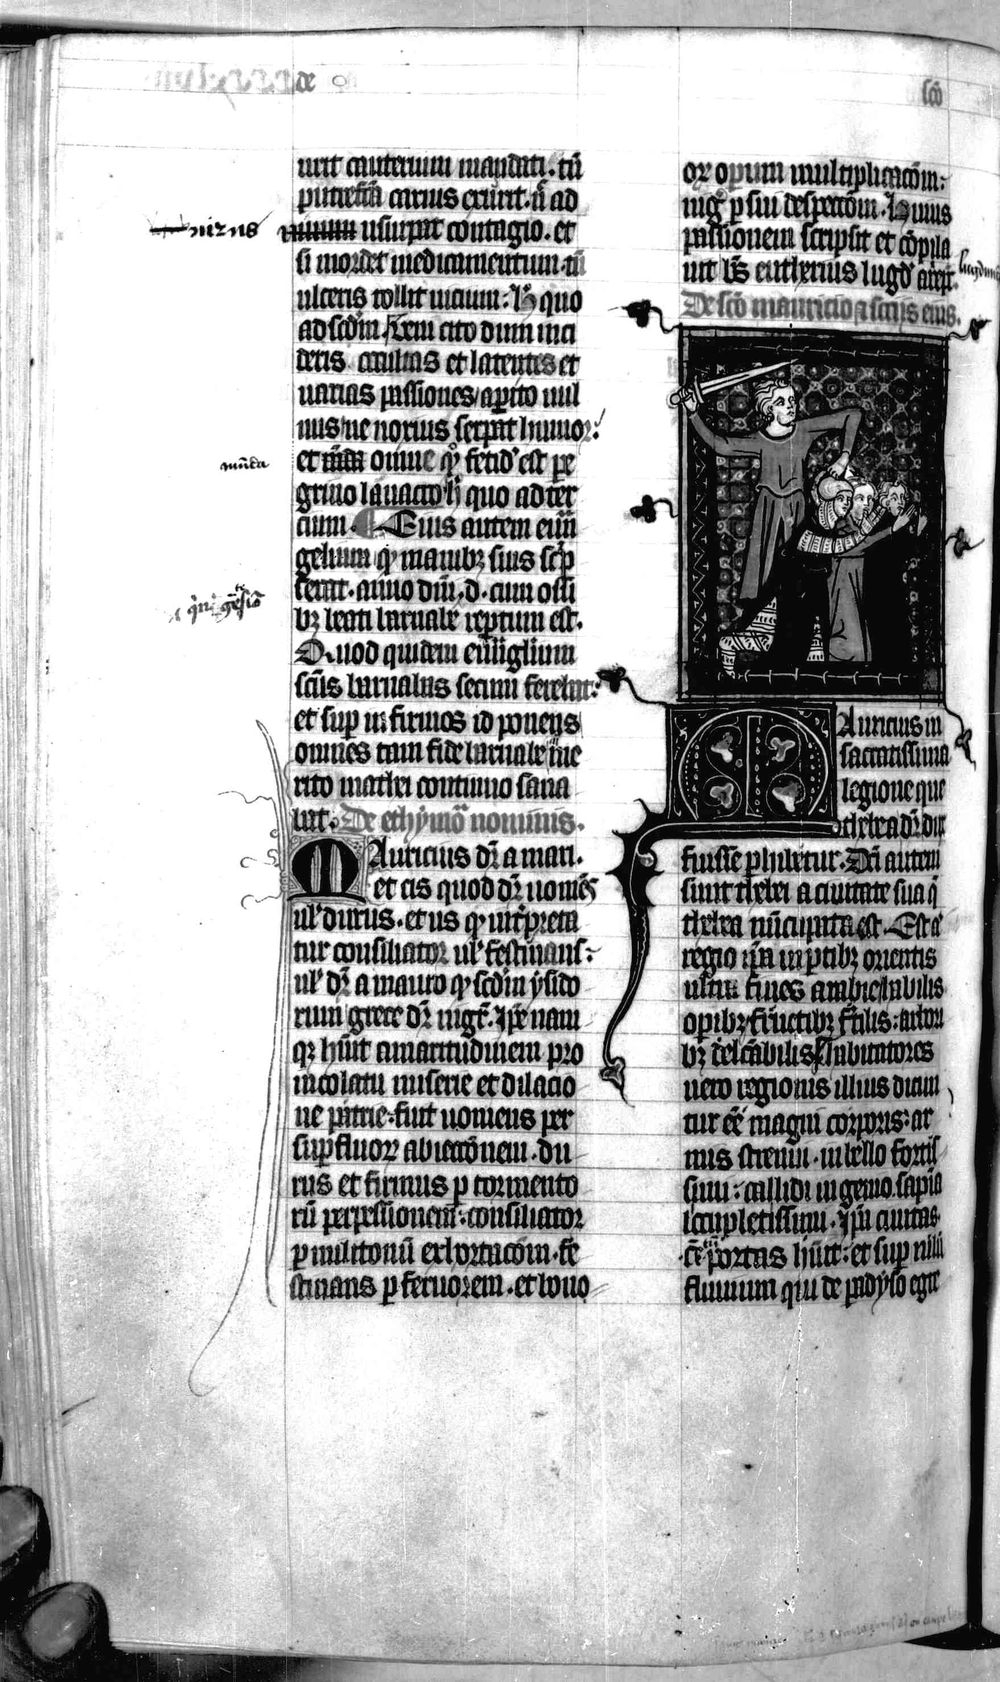 de
scō
urit cauterium mandati. tn̄
putrefc̄ā carius erūit. n̄ ad
usurpat contagio. et
nizus
si mordet medicamentum. tn̄
ulceris tollit uicium: h̓ quo
ad scdm̄. Rem cito dum inci
deris occultas et latentes et
uarias passiones apito uul
nus ne noxius serpat humor:
et omne qd̓ fetid̓ est pe
munda
grino lauacro h̓ quo ad ter
cium. Eius autem euū
gelium qd̓ manibꝫ suis scp̄
serat. anno dn̄i. d. cum ossi
bꝫ beati barnabe reptum est.
Quod quidem euūglium
scūs barnabas secum ferebat:
et sup infirmos id ponens
omnes tam fide barnabe me
rito mathei continuo sana
bat. De ethymo nominis.
Mauricius dr̄ a mari.
et cis quod dr̄ uomēs
ul̓ durus. et us qd̓ int̓preta
tur consiliator ul̓ festinans:
ul̓ dr̄ a mauro qd̓ scdm̄ ysido
rum grece dr̄ nigr̄. Ip̄e nam
qꝫ hūit amaritudinem pro
incolatu miserie et dilacio
ne patrie. fuit uomens per
supfluoꝝ abiectōnem. du
rus et firmus p tormento
rū perpessionem. consiliator
p militonū exhortacōm. fe
stinans p feruorem. et bono
or opum multiplicacōm:
nig̓ p sui despectōm. Huius
passionem scripsit et cōpila
uit bt̄s eutherius lugd̓ arēp̄.
De scō mauricio ⁊ sociis eius.
Mauricius in
sacratissima
legione que
thebea dr̄ dux
fuisse phibetur. Dn̄i autem
sunt thebei a ciuitate sua q̄
thebea nūcupata est. Est aͭ
regio ip̄a in ptibꝫ orientis
ultra fines arabie habilis
opibꝫ fructibꝫ f̓tilis: arbori
bꝫ delc̄abilis. Habitatores
uero regionis illius dicun
tur ēē magni corporis: ar
mis strenui. in bello fortis
simi: callidi ingenio. sapīa
locupletissimi. Ip̄a ciuitas
portas hūit: et sup nilū
fluuium qui de padyso egre